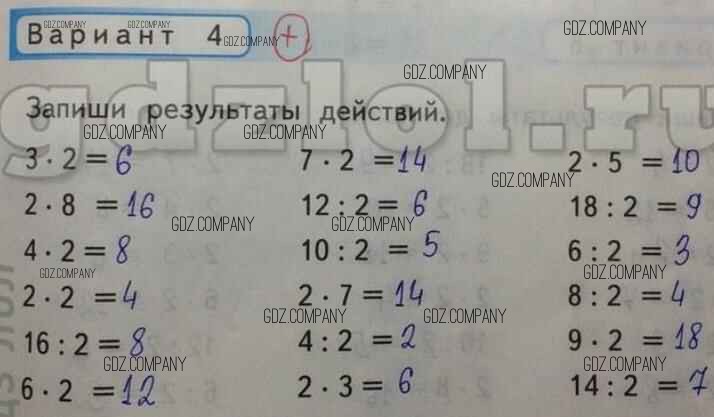 GDZ.COMPANY GDZ.COMPANY GDZ.COMPANY
Вариант 4 GDZ.COMPANY +
GDZ.COMPANY
gdzlol.ru
Запиши результаты действий.
GDZ.COMPANY GDZ.COMPANY
3 · 2 = 6 7 · 2 = 14 2 · 5 = 10
GDZ.COMPANY
2 · 8 = 16 12 : 2 = 6 18 : 2 = 9
GDZ.COMPANY
4 · 2 = 8 10 : 2 = 5 6 : 2 = 3
GDZ.COMPANY GDZ.COMPANY
2 · 2 = 4 2 · 7 = 14 8 : 2 = 4
GDZ.COMPANY GDZ.COMPANY
16 : 2 = 8 4 : 2 = 2 9 · 2 = 18
GDZ.COMPANY GDZ.COMPANY
6 · 2 = 12 2 · 3 = 6 14 : 2 = 7